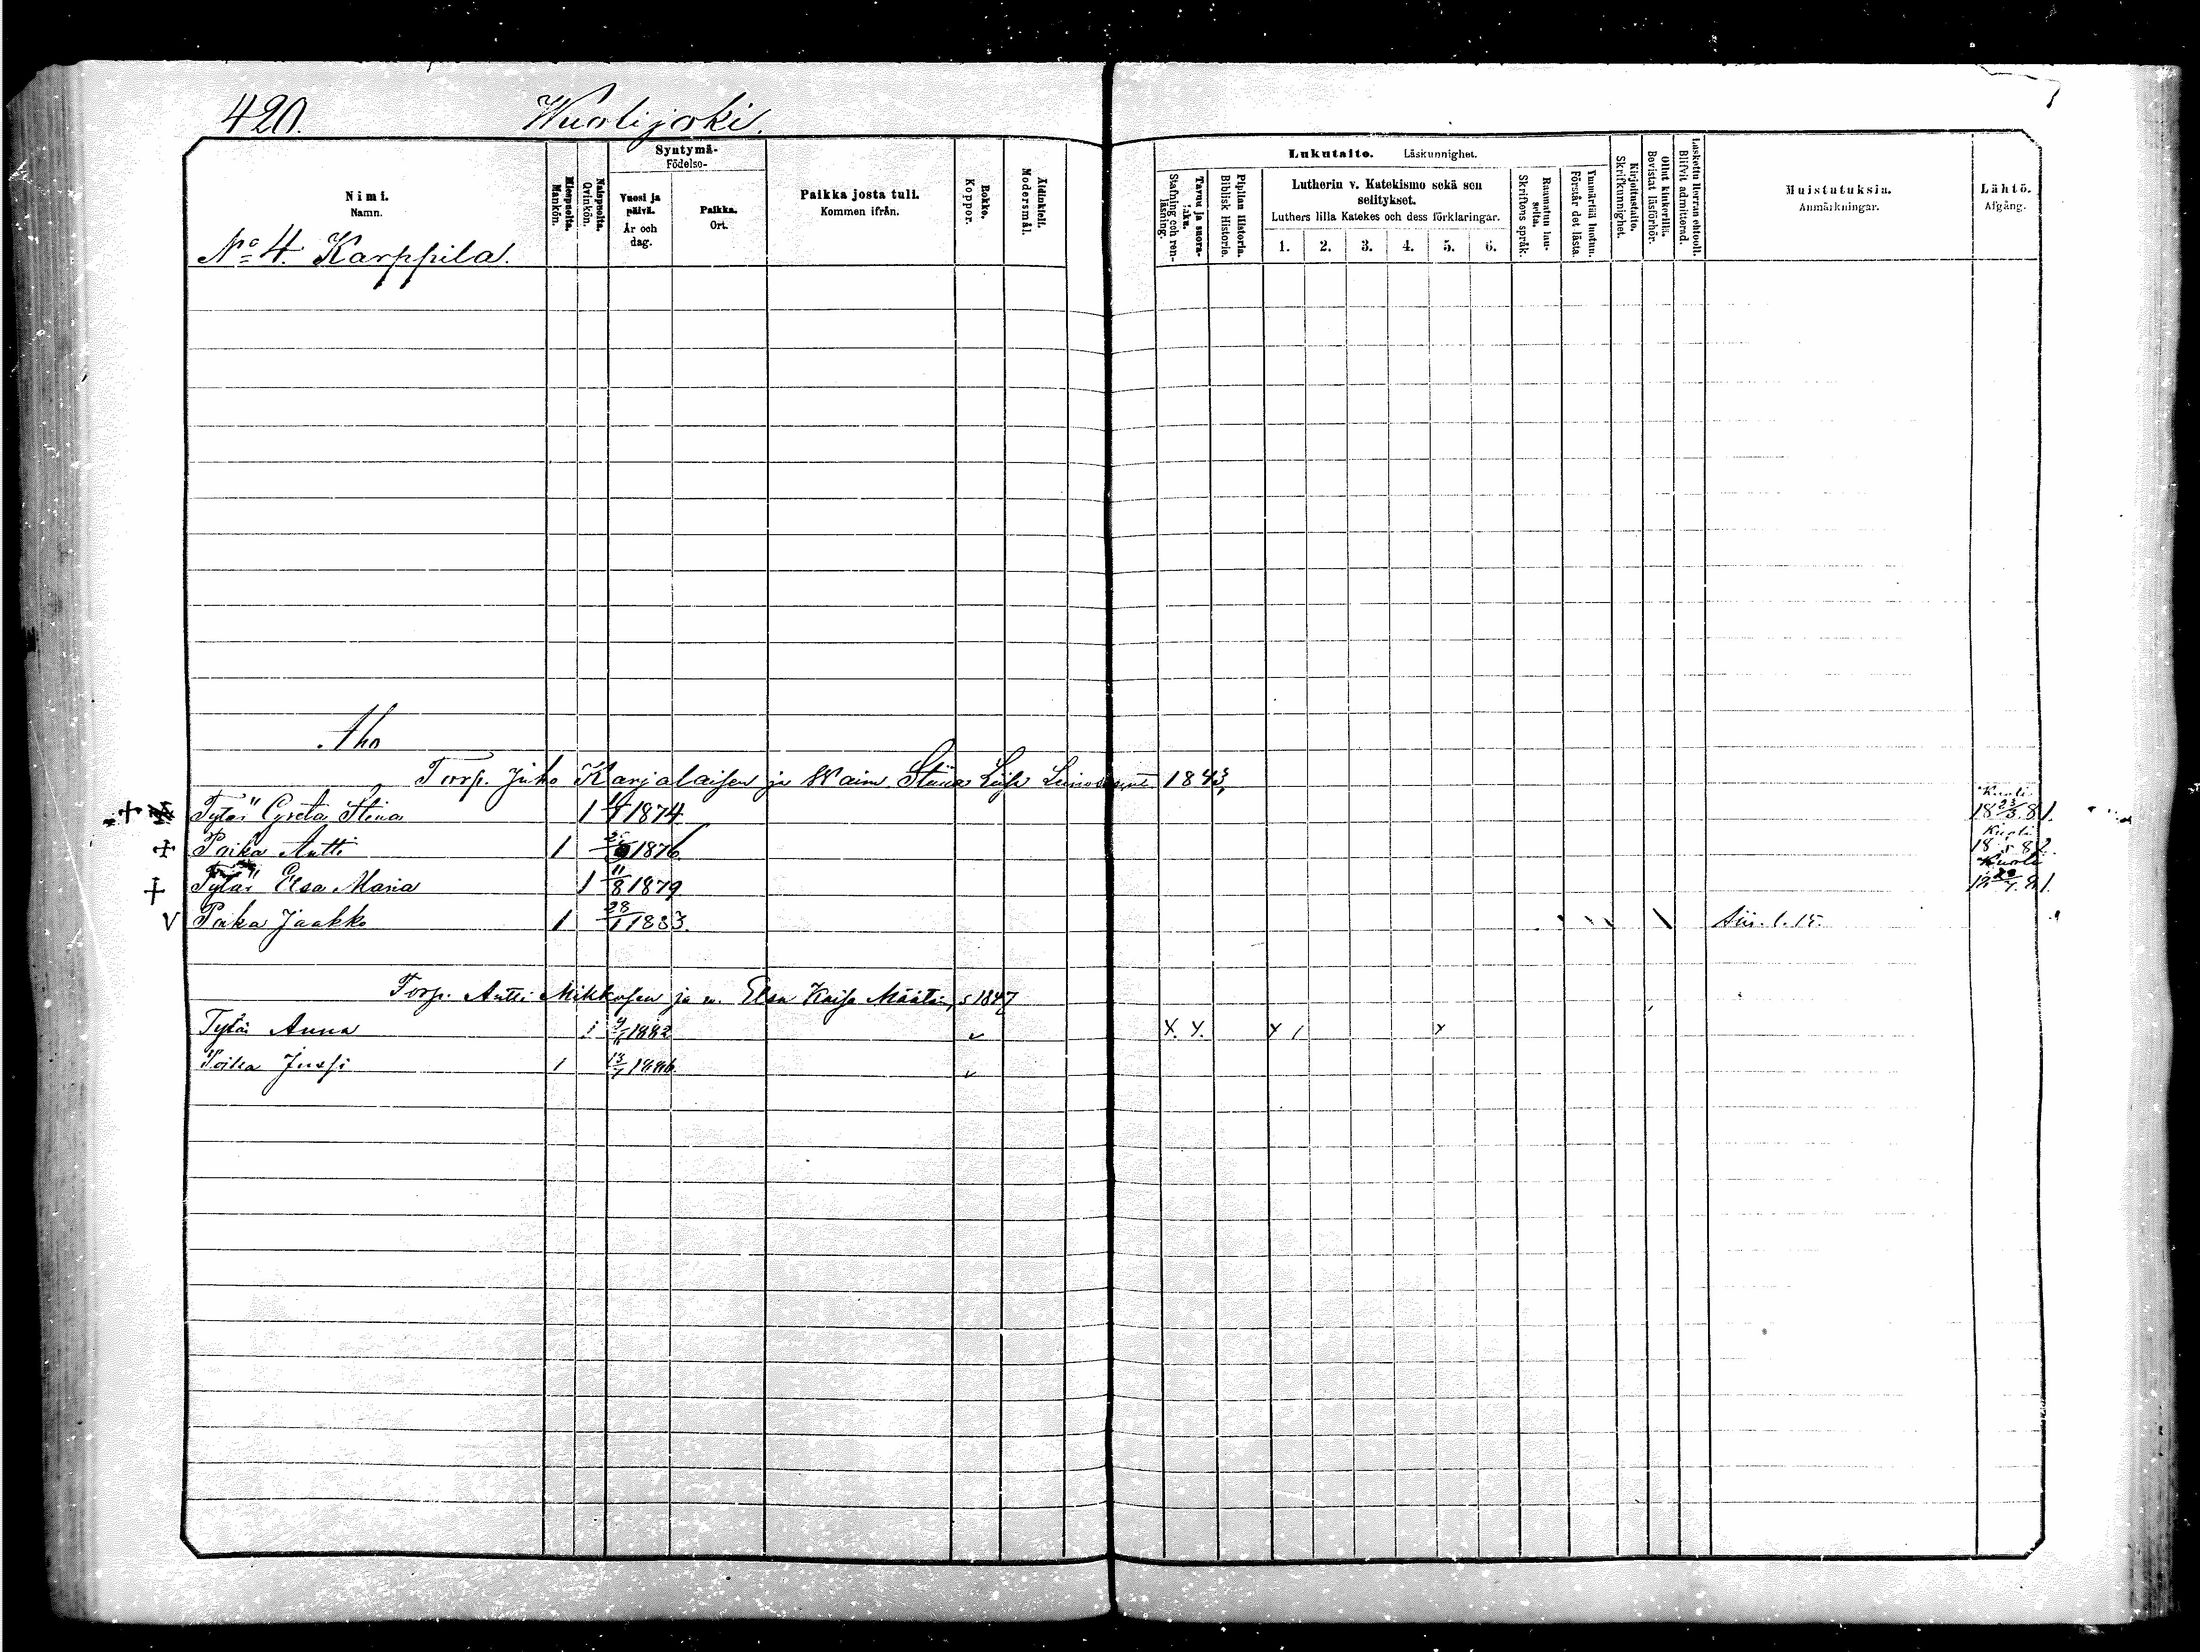 420. Wuolijoki.
Nimi. Namn.
Miespuolia. Mankön.
Naispuolia. Qvinkön.
Syntymä- Födelse-
Vuosi ja päivä. År och dag.
Paikka. Ort.
Paikka josta tuli. Kommen ifrån.
Rokko. Koppor.
Äidinkieli. Modersmål.
Lukutaito. Läskunnighet.
Tavuu ja suora-luku. Stafning och ren-läsning.
Piplian Historia. Biblisk Historie.
Lutherin v. Katekismo sekä sen selitykset.
Luthers lilla Katekes och dess förklaringar.
1. 2. 3. 4. 5. 6.
Raamatun lau-seita. Skriftens språk.
Ymmärtää luetun. Förstår det lästa.
Kirjoitustaito. Skrifkunnighet.
Ollut kinkerillä. Bevistat läsförhör.
Laskettu Herran ehtoolle. Blifvit admitterad.
Muistutuksia. Anmärkningar.
Lähtö. Afgång.
No 4. Karppila.
Aho
Torp. Juho Karjalaisen ja Waim. Stiina Liisa 1843,
+ Tytär Greta Stina 1 1874 Kuoli 18 23/5 81.
+ Poika Antti 1 1876 Kuoli 18 82.
+ Tytär Elsa Maria 1 11/8 1879 Kuoli 81.
V Poika Jaakko 1 28/1 1883. Sii. l. 15.
Torp. Antti Mikkosen ja w. Elsa Kaisa Määttä, s 1847
Tytär Anna 1 1882 v X X. X / X
Poika Jussi 1 13/7 1886 v